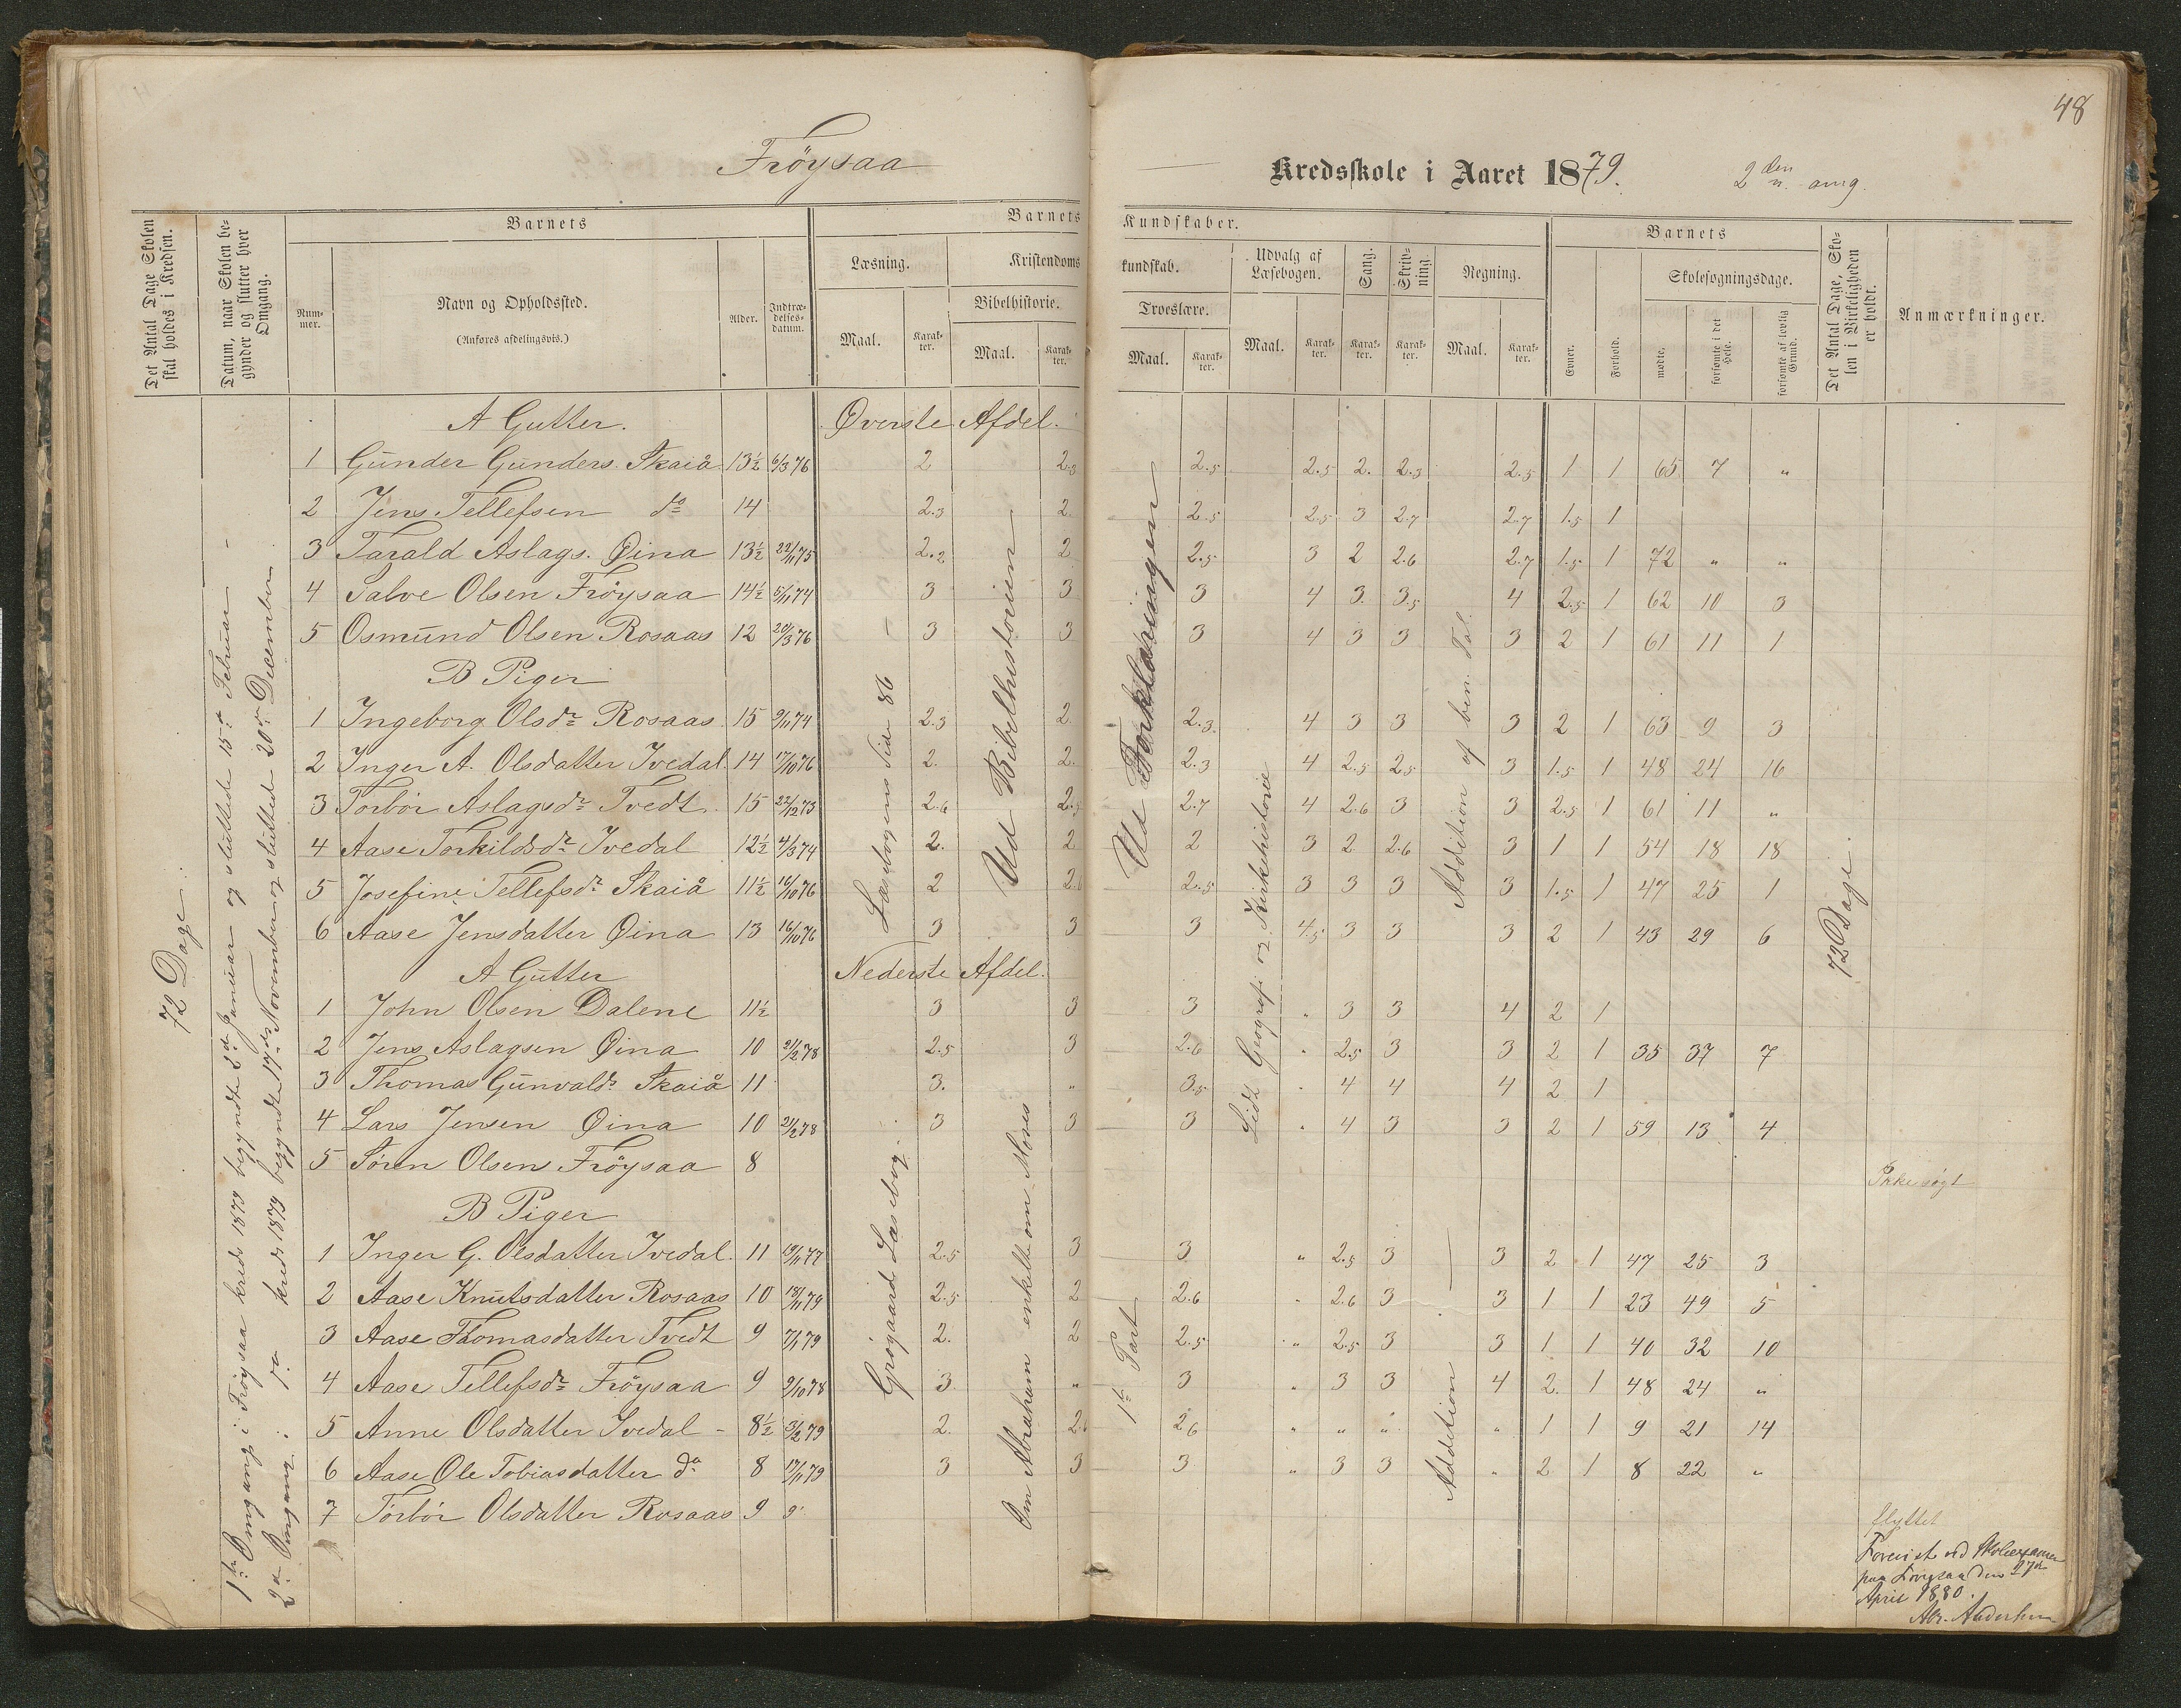 48
Fröysaa
Kredsskole i Aaret 1879. 2den omg.
Det Antal Dage Skolen skal holdes i Kredsen.
Datum, naar Skolen begynder og slutter hver Omgang.
Barnets
Nummer.
Navn og Opholdssted.
(Anføres afdelingsvis.)
Alder.
Indtrædelsesdatum.
Barnets Kundskaber.
Læsning.
Maal. Karakter.
Kristendomskundskab.
Bibelhistorie.
Maal. Karakter.
Troeslære.
Maal. Karakter.
Udvalg af Læsebogen.
Maal. Karakter.
Sang.
Karakter.
Skrivning.
Karakter.
Regning.
Maal. Karakter.
Barnets
Evner.
Forhold.
Skolesøgningsdage.
mødte.
forsømte i det Hele.
forsømte af lovlig Grund.
Det Antal Dage, Skolen i Virkeligheden er holdt.
Anmærkninger.
72 Dage.
1ste Omgang i Fröysaa kreds 1879 begyndte 3die Januar og sluttede 15de Februar –
2den Omgang i do kreds 1879 begyndte 17de November og sluttede 20de December
A Gutter. Øverste Afdel.
1 Gunder Gunders. Skaiå 13½ 6/3 76 2 2.3 2.5 2.5 2. 2.3 2.5 1 1 65 7 "
2 Jens Tellefsen do 14 2.3 2. 2.5 2.5 3 2.7 2.7 1.5 1
3 Tarald Aslags. Øina 13½ 22/11 75 2.2 2 2.5 3 2 2.6 2.7 1.5 1 72 " "
4 Salve Olsen Fröysaa 14½ 5/11 74 3 3 3 4 3. 3.5 4 2.5 1 62 10 3
5 Osmund Olsen Rosaas 12 20/3 76 3 3 3 4 3 3 3 2 1 61 11 1
B Piger
1 Ingeborg Olsdr Rosaas 15 9/11 74 2.3 2 2.3 4 3 3 3 2 1 63 9 3
2 Inger A. Olsdatter Ivedal 14 17/10 76 2. 2. 2.3 4 2.5 2.5 3 1.5 1 48 24 16
3 Torbór Aslagsdr Tvedt 15 22/12 73 2.6 2.5 2.7 4 2.6 3 3 2.5 1 61 11 "
4 Aase Torkildsdr Ivedal 12½ 4/3 74 2. 2 2 3 2 2.6 3 1 1 54 18 18
5 Josefine Tellefsdr Skaiå 11½ 16/10 76 2 2.6 2.5 3 3 3 3 1.5 1 47 25 1
6 Aase Jensdatter Øina 13 16/10 76 3 3 3 4.5 3 3 3 2 1 43 29 6
Læsebogens Side 86
Ud Bibelhistorien
Ud Forklaringen
Lidt Geografi og Kirkehistorie
Addition af ben. Tal.
72 Dage.
A Gutter Nederste Afdel.
1 John Olsen Dalene 11½ 3 3 3 " 3 3 4 2 1
2 Jens Aslagsen Øina 10 21/2 78 2.5 3 2.6 " 2.5 3 3 2 1 35 37 7
3 Thomas Gunvalds Skaiå 11 3. " 3.5 " 4 4 4 2 1
4 Lars Jensen Øina 10 21/2 78 3 3 3 " 4 3 3 2 1 59 13 4
5 Sören Olsen Fröysaa 8 Ikke søgt
B Piger
1 Inger G. Olsdatter Ivedal. 11 19/11 77 2.5 3 3 " 2.5 3 3 2 1 47 25 3
2 Aase Knutsdatter Rosaas 10 18/11 79 2.5 2 2.6 " 2.6 3 3 1 1 23 49 5
3 Aase Thomasdatter Tvedt 9 7/1 79 2. 2 2.5 " 2.5 3 3 1 1 40 32 10
4 Aase Tellefsdr Fröysaa 9 2/10 78 3. " 3 " 3 3 4 2. 1 48 24 "
5 Anne Olsdatter Ivedal - 8½ 3/2 79 2. 2.6 2.6 " " " " 1 1 9 21 14
6 Aase Ole Tobiasdatter do 8 17/11 79 3 3 3 " 3 3 " 2 1 8 22 "
7 Torbór Olsdatter Rosaas 9 9 flyttet
Grögaard Læsebog.
Om Abraham enkelte om Moses
1ste Part
Addition
Forevist ved Skoleexamen
paa Fröysaa den 27de
April 1880.
Abr. Andersen